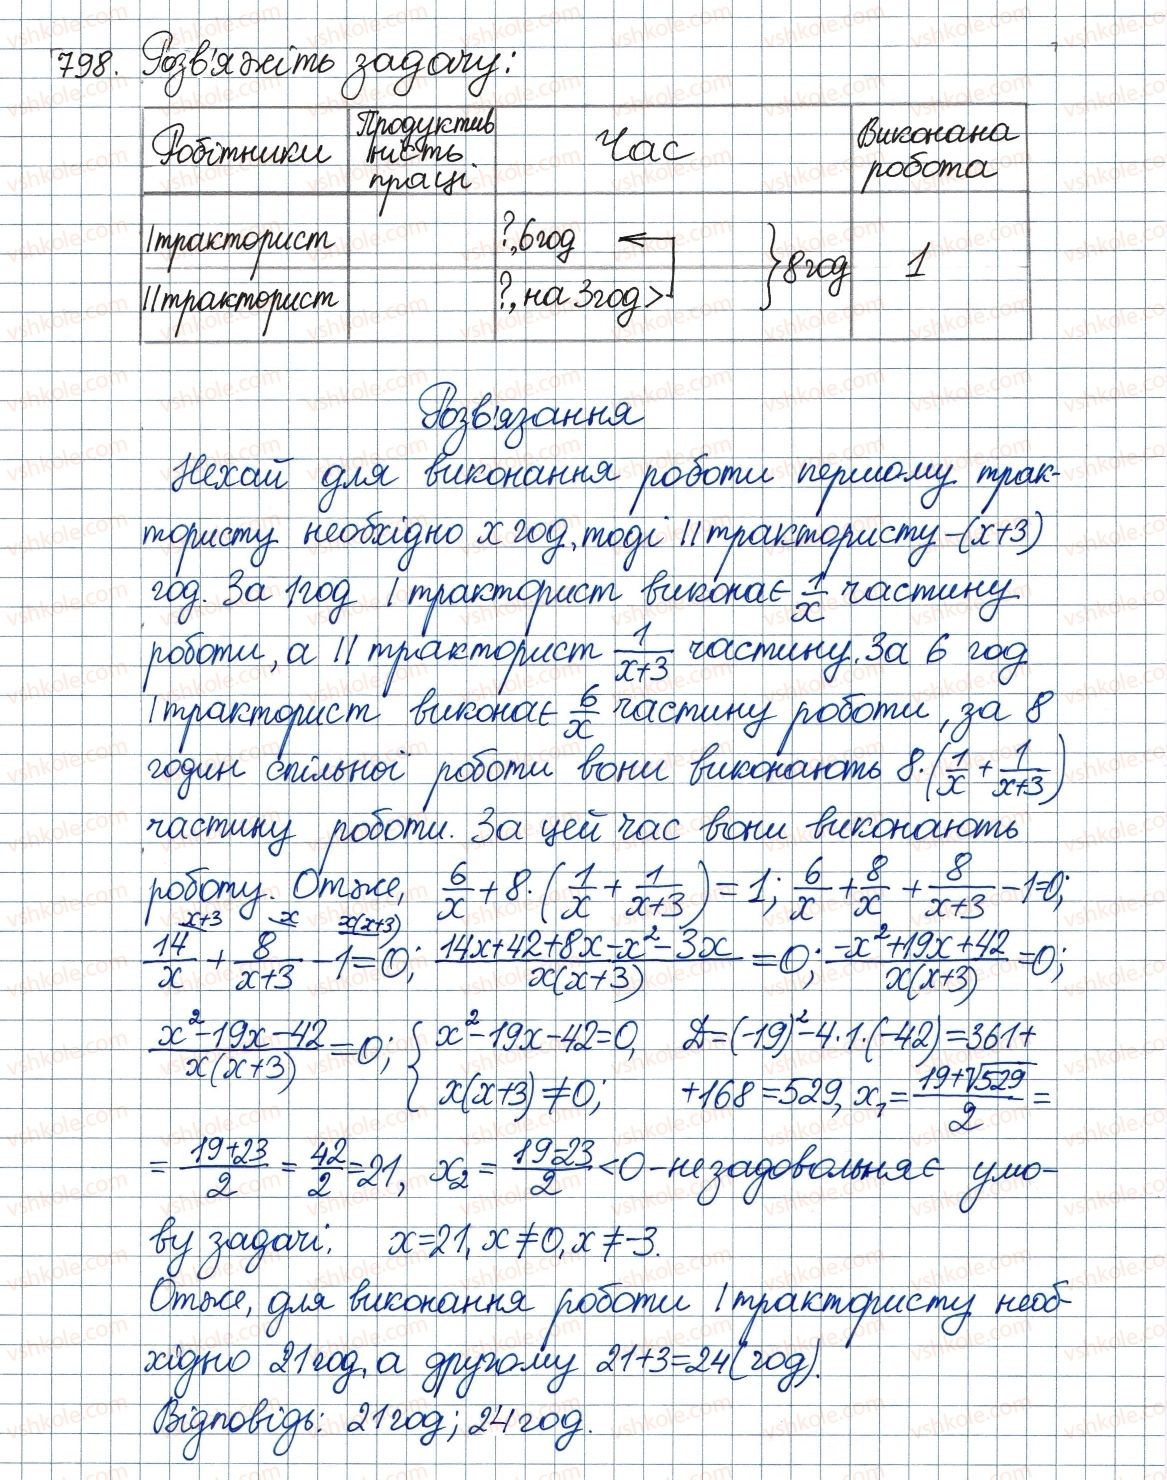 798. Розв'яжіть задачу:
Робітники | Продуктивність праці | Час | Виконана робота
I тракторист | | ?, 6 год | 8 год | 1
II тракторист | | ?, на 3 год >
Розв'язання
Нехай для виконання роботи першому трак-
тористу необхідно x год, тоді II трактористу – (x+3)
год. За 1 год I тракторист виконає 1/x частину
роботи, а II тракторист 1/(x+3) частину. За 6 год
I тракторист виконає 6/x частину роботи, за 8
годин спільної роботи вони виконають 8·(1/x + 1/(x+3))
частину роботи. За цей час вони виконають
роботу. Отже, 6/x + 8·(1/x + 1/(x+3)) = 1; 6/x + 8/x + 8/(x+3) – 1=0;
14/x (x+3) + 8/(x+3) (x) – 1 (x(x+3)) = 0; (14x+42+8x–x²–3x)/(x(x+3)) = 0; (–x²+19x+42)/(x(x+3)) = 0;
(x²–19x–42)/(x(x+3)) = 0; { x²–19x–42=0, D=(–19)²–4·1·(–42)=361+
x(x+3)≠0; +168=529, x₁=(19+√529)/2 =
= (19+23)/2 = 42/2 = 21, x₂ = (19–23)/2 <0 – не задовольняє умо-
ву задачі. x=21, x≠0, x≠–3.
Отже, для виконання роботи I трактористу необ-
хідно 21 год, а другому 21+3=24 (год).
Відповідь: 21 год; 24 год.